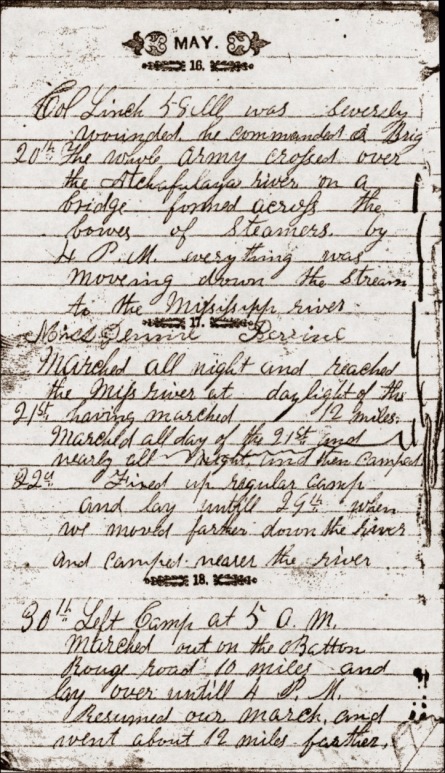 MAY.
16.
Col Linch 58 Ill was severly
wounded he commanded a Brig
20th The whole army crossed over
the Atchafalaya river on a
bridge formed across the
bowes of Steamers. by
4 P.M. everything was
moveing down the Stream
to the Missisipp river
17.
Miss Jennie Perrine
Marched all night and reached
the Miss river at daylight of the
21st having marched 12 miles.
Marched all day of the 21st and
nearly all night and then camped
22d Fixed up regular Camp
and lay untill 29th when
we moved farther down the river
and camped nearer the river
18.
30th Left Camp at 5 A.M.
Marched out on the Batton
Rouge road 10 miles and
lay over untill 4 P.M.
Resumed our march, and
went about 12 miles farther,